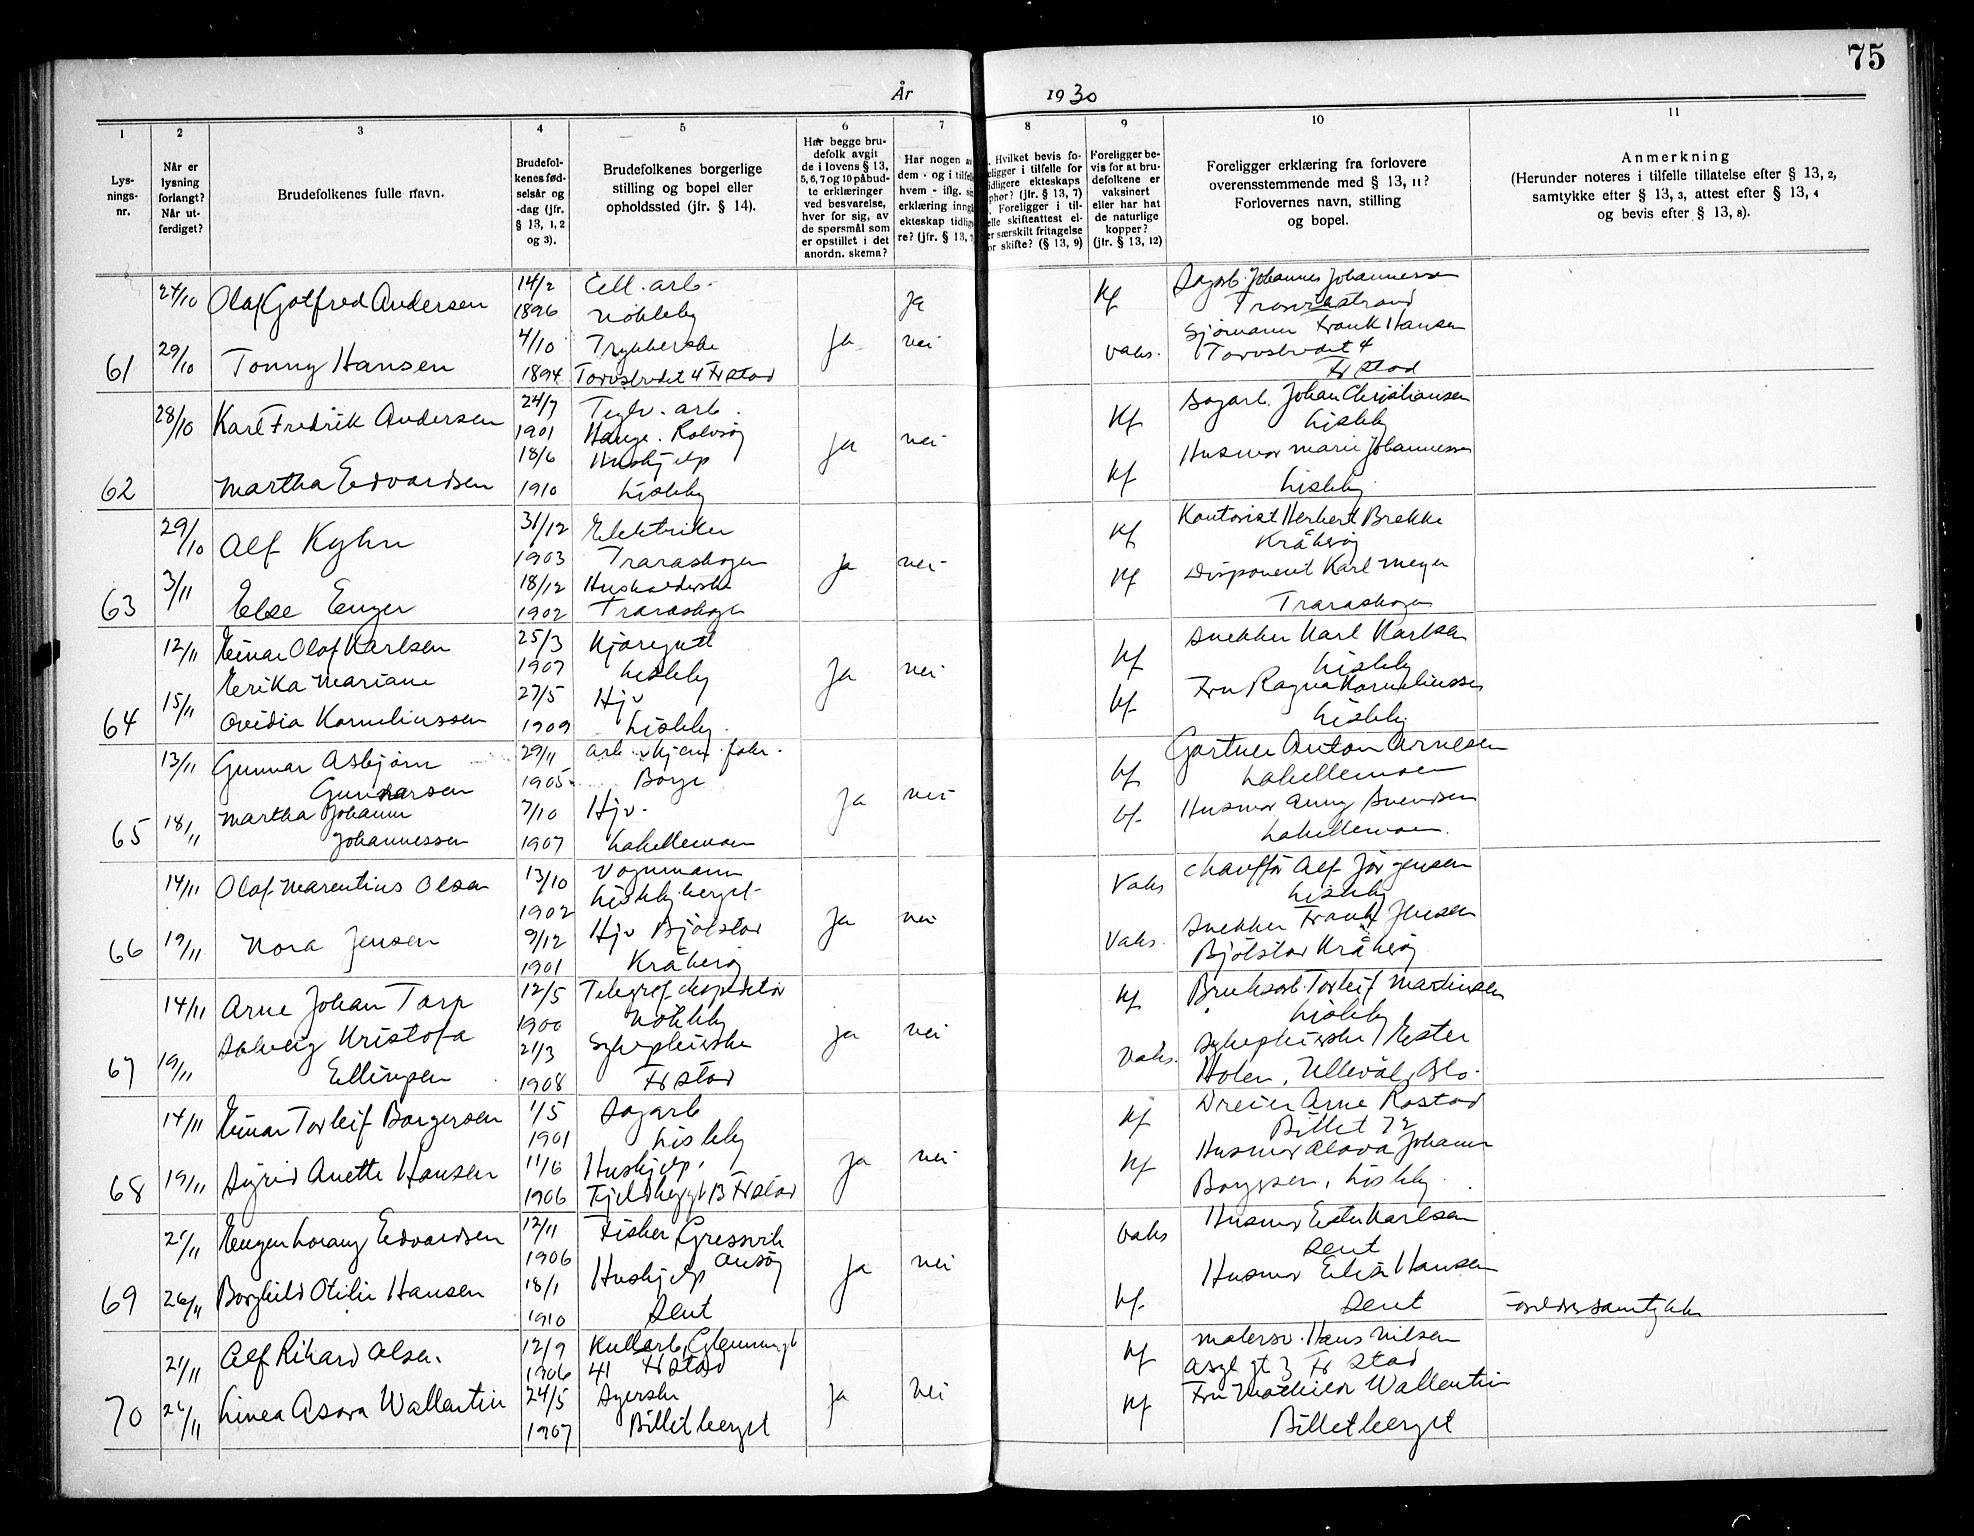 75
År 1930
1 2 3 4 5 6 7 8 9 10 11
Lys-
nings-
nr.
Når er
lysning
forlangt?
Når ut-
ferdiget?
Brudefolkenes fulle navn.
Brudefol-
kenes fød-
selsår og
-dag (jfr.
§ 13, 1, 2
og 3).
Brudefolkenes borgerlige
stilling og bopel eller
opholdssted (jfr. § 14).
Har begge bru-
defolk avgit
de i lovens § 13,
5, 6, 7 og 10 påbud-
te erklæringer
ved besvarelse,
hver for sig, av
de spørsmål som
er opstillet i det
anordn. skema?
Har nogen a
dem - og i tilfe
hvem - iflg. si
erklæring inng
ekteskap tidlig
re? (jfr. § 13,
Hvilket bevis fo-
religger i tilfelle for
tidligere ekteskaps
ophør? (jfr. § 13, 7)
Foreligger i til-
elle skifteattest el-
er særskilt fritagelse
or skifte? (§ 13, 9)
Foreligger be-
vis for at bru-
defolkene er
vaksinert
eller har hat
de naturlige
kopper?
(jfr. § 13, 12)
Foreligger erklæring fra forlovere
overensstemmende med § 13, 11?
Forlovernes navn, stilling
og bopel.
Anmerkning
(Herunder noteres i tilfelle tillatelse efter § 13, 2,
samtykke efter § 13, 3, attest efter § 13, 4
og bevis efter § 13, 8).
24/10 Olaf Gotfred Andersen 14/2 Cell. arb. Ja Kf Sagarb. Johannes Johannessen
1896 Nökleby Trosvikstrand
4/10 Trykkerske Ja nei Sjømann Frank Hansen
61 29/10 Tonny Hansen 1894 Torvebrodet 4 Frstad vaks. Torvebrodet 4
Fr stad
28/10 Karl Fredrik Andersen 24/7 Teglv. arb. Kf Sagarb. Johan Christiansen
1901 Hauge. Rolvsøy Lisleby
18/6 Hushjelp Ja nei Husmor Marie Johannessen
62 Martha Edvardsen 1910 Lisleby Kf Lisleby
29/10 Alf Kyhn 31/12 Elektriker Kf Kontorist Herbert Brekke
1903 Traraskogen Kråkerøy
3/11 18/12 Husholderske Ja nei Kf Disponent Karl Meyer
63 Else Enger 1902 Traraskogen Traraskogen
12/11 Einar Olaf Karlsen 25/3 Kjøregutt Kf Snekker Karl Karlsen
1907 Lisleby Ja nei Lisleby
Erika Mariane 27/5 Hjv Kf Fru Ragna Korneliussen
64 15/11 Ovidia Korneliussen 1909 Lisleby Lisleby
13/11 Gunnar Asbjørn 29/11 arb. kjem. fabr. Kf Gartner Anton Arnesen
Gundersen 1905 Borge Lahellemoen
Martha Johanne 7/10 Hjv. Ja nei Kf Husmor Anny Svendsen
65 18/11 Johannessen 1907 Lahellemoen Lahellemoen
14/11 Olaf Marentius Olsen 13/10 Vognmann Vaks Chauffør Alf Jørgensen
1902 Lislebyberget Lisleby
9/12 Hjv Bjölstad Ja nei Vaks. Snekker Frank Jensen
66 19/11 Nora Jensen 1901 Kråkerøy Bjölstad Kråkerøy
14/11 Arne Johan Tarp 12/5 Telegrafekspeditør Kf Bruksarb. Torleif Martinsen
1900 Nökleby Lisleby
Solveig Kristofa 21/3 Sykepleierske Ja nei Vaks. Sykepleierske Ester
67 19/11 Ellingsen 1908 Fr stad Holen, Ullevål, Oslo.
14/11 Einar Torleif Borgersen 1/5 Sagarb Kf Dreier Arne Rostad
1901 Lisleby Billet 72
11/6 Hushjelp, Ja nei Kf Husmor Olava Johanne
68 19/11 Sigrid Anette Hansen 1906 Fjeldbergt B Frstad Borgersen, Lisleby.
21/11 Eugen Lorang Edvardsen 12/11 Fisker Gressvik Vaks Husmor Ester Karlsen
1906 Onsøy Sent
18/1 Hushjelp Ja nei Husmor Elise Hansen
69 26/11 Borghild Otilie Hansen 1910 Sent Kf. Sent Foreldresamtykke
21/11 Alf Rikard Olsen. 12/9 Kullarb. Glemmengt Kf Malersv. Hans Nilsen
1906 41 Fr stad Asylgt 3 Fr stad
24/5 Syerske Ja nei Kf Fru Mathilda Wallentin
70 26/11 Linea Asora Wallentin 1907 Billetberget Billetberget